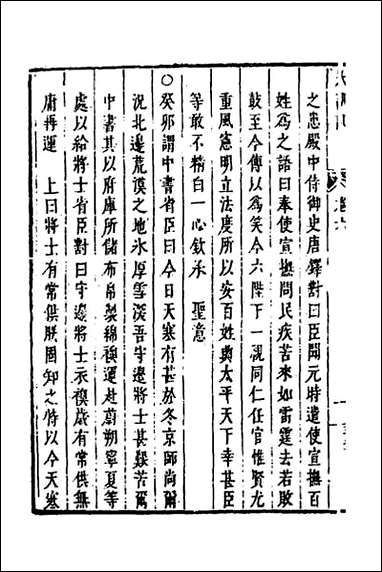 之患殿中侍御史唐鐸對曰臣聞元時遣使宣撫百
姓為之語曰奉使宣撫問民疾苦來如雷霆去若敗
鼓至今傳以為笑今六陛下一視同仁任官惟賢尤
重風憲明立法度所以安百姓興太平天下幸甚臣
等敢不精白一心欽承　聖意
○癸卯謂中書省臣曰今日天寒有甚於冬京師尚爾
況北邊荒漠之地冰厚雪深吾守邊將士甚艱苦爾
中書其以府庫所儲布帛製綿襖運赴蔚朔寧夏等
處以給將士省臣對曰守邊將士衣襖歲有常供無
庸再運　上曰將士有常供朕固知之特以今天寒